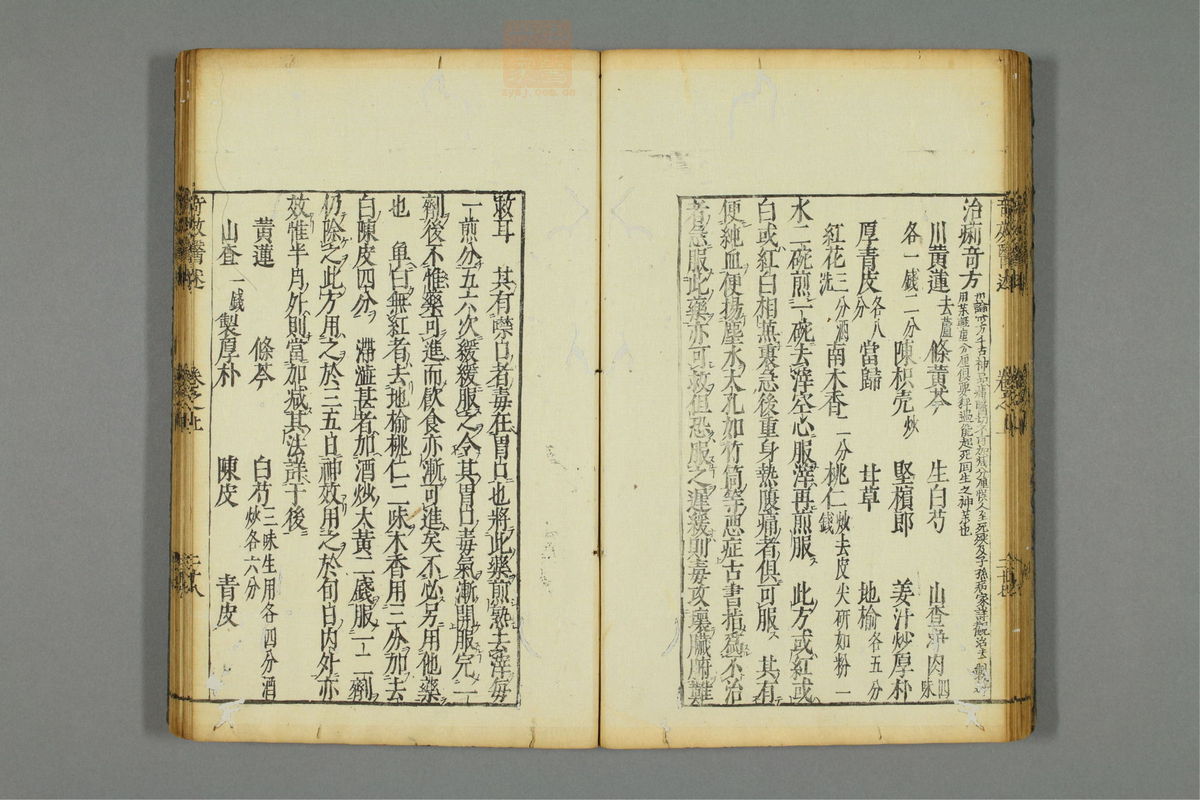 治痢奇方
川黄蓮去蘆 條黄芩 生白芍 山査淨肉四味
各一錢二分陳枳壳炒 堅檳郎 姜汁炒厚朴
厚青皮各八分 當歸 甘草 地榆各五分
紅花三分酒洗 南木香二分桃仁炒去皮尖研如粉一錢
水二碗煎一碗去滓空心服滓再煎服 此方或紅或
白或紅白相蒸裏急後重身熱腹痛者俱可服 其有
便純血便揚塵水大孔如竹筒等悪症古書指為不治
者急服此藥亦可救但恐服之遲緩則毒攻壞臟腑難
救耳 其有噤口者毒在胃口也將此藥煎熟去滓毎
一煎分五六次緩緩服之令其胃口毒氣漸開服完一
劑後不惟藥可進而飲食亦漸可進矣不必另用他藥
也 單白無紅者去地榆桃仁二味木香用三分加去
白陳皮四分 滯澁甚者加酒炒大黄二錢服一二劑
仍除之此方用之於三五日神效用之於旬日内外亦
效惟半月外則當加减其法詳于後
黄蓮 條芩 白芍三味生用各四分酒炒各六分
山査一錢製厚朴 陳皮 青皮
奇效醫述 卷之上 二十八